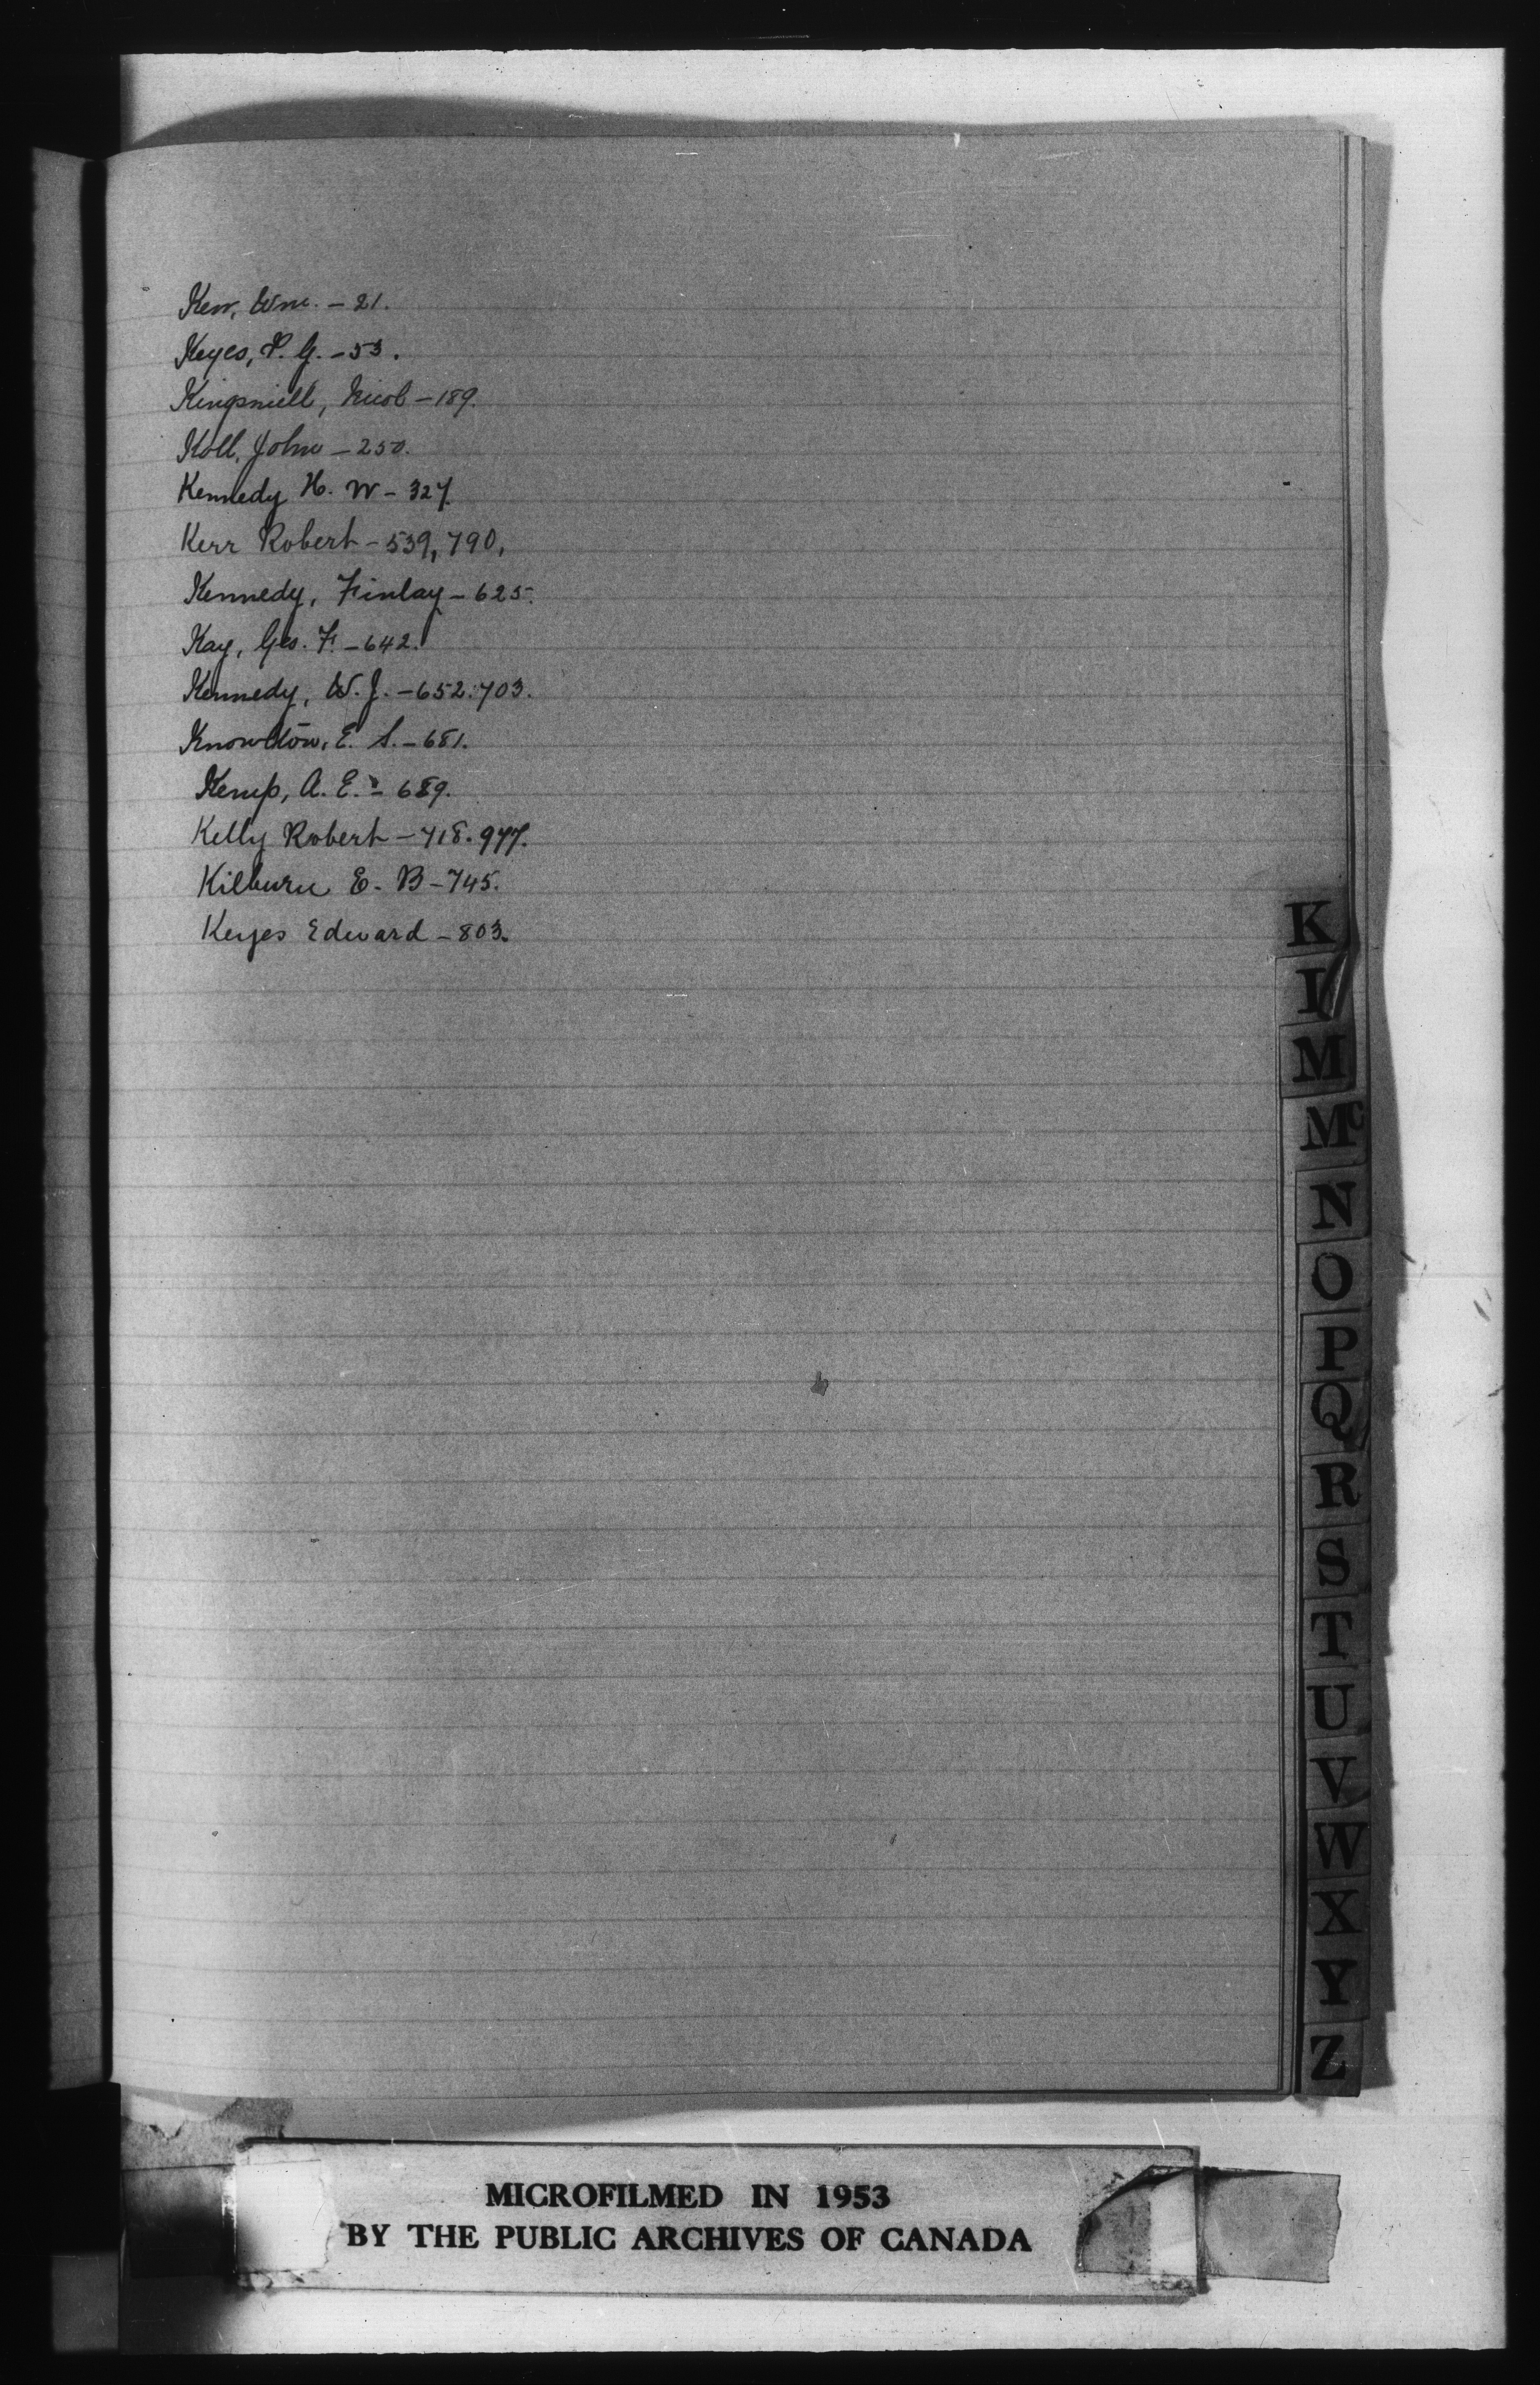 Kerr, Wm. - 21.
Keyes, P. G. - 53.
Kingsmill, Nicol - 189.
Koll, John - 250.
Kennedy H. W - 327.
Kerr Robert - 539, 790,
Kennedy, Finlay - 625.
Kay, Geo. F. - 642.
Kennedy, W. J. - 652. 703.
Knowlton, E. S. - 681.
Kemp, A. E. - 689.
Kelly Robert - 718. 977.
Kilburn E. B - 745.
Keyes Edward - 803.
K
L
M
Mc
N
O
P
Q
R
S
T
U
V
W
X
Y
Z
MICROFILMED IN 1953
BY THE PUBLIC ARCHIVES OF CANADA